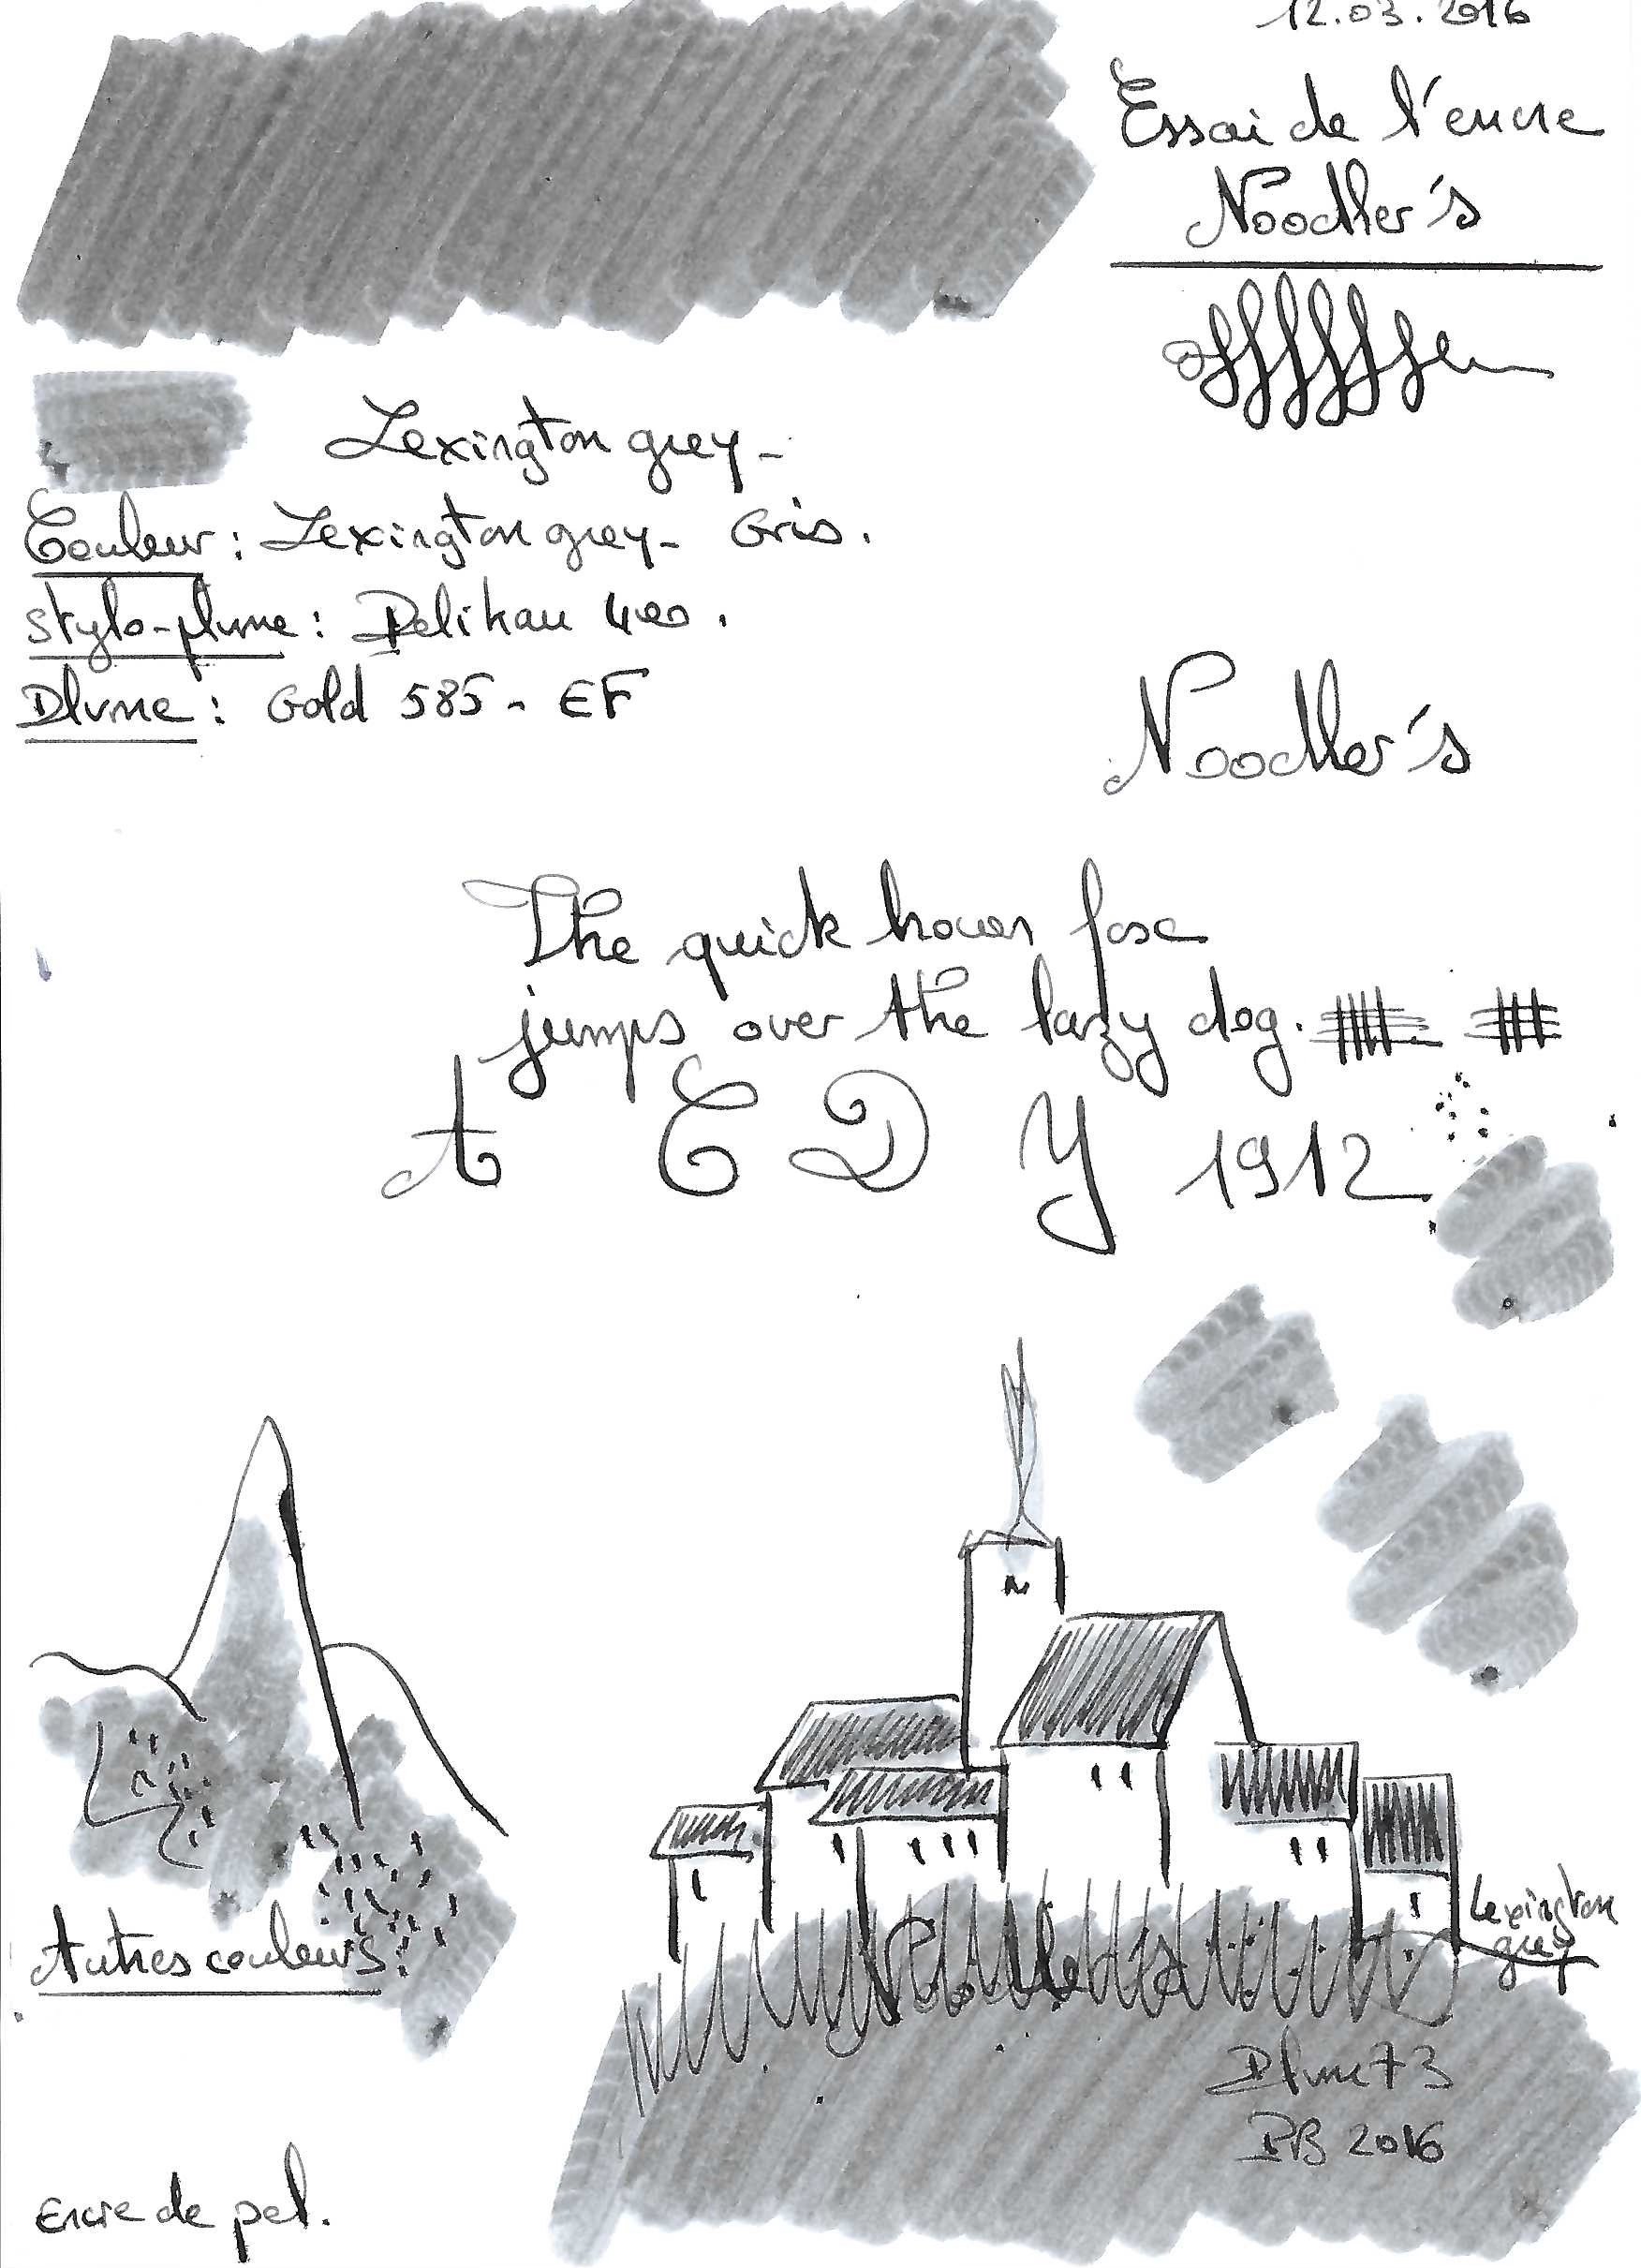 12.03.2016
Essai de l'encre
Noodler's
Lexington grey-
Couleur : Lexington grey- Gris.
Stylo-plume : Pelikan 400.
Plume : Gold 585 - EF
Noodler's
The quick brown fox
jumps over the lazy dog.
A C D Y 1912
Lexington
grey
Autres couleurs :
Plume 73
PB 2016
Encre de pel.